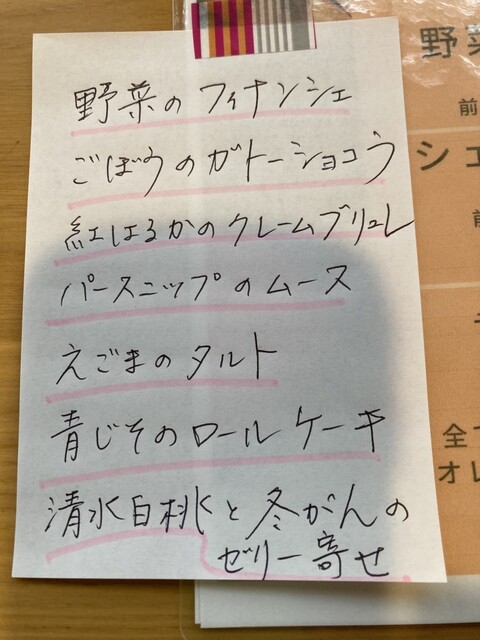 野菜のフィナンシェ
ごぼうのガトーショコラ
紅はるかのクレームブリュレ
パースニップのムース
えごまのタルト
青じそのロールケーキ
清水白桃と冬がんの
ゼリー寄せ
野菜
前
シェ
全て
オレ